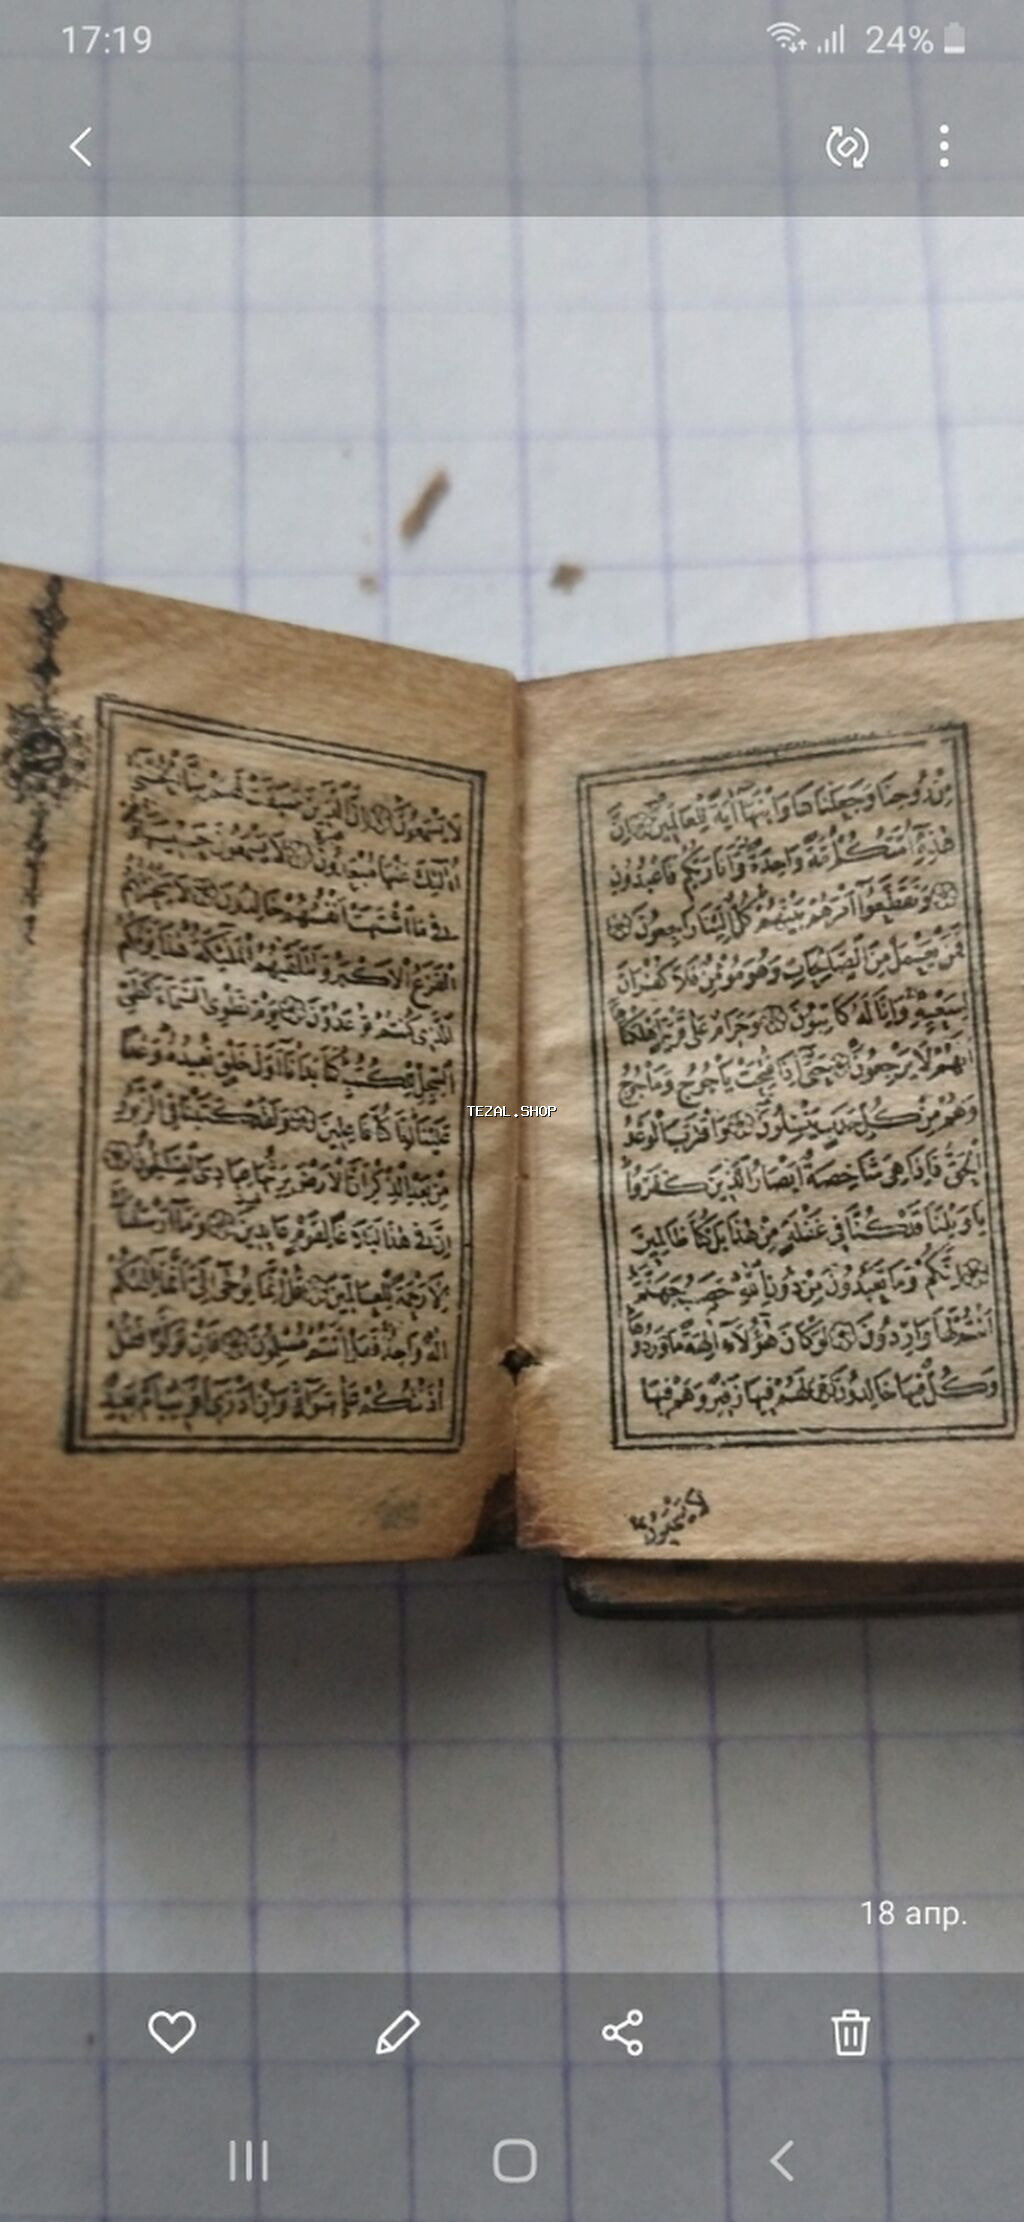 17:19
24%
مِنْ رُوحِنَا وَجَعَلْنَاهَا وَابْنَهَا آيَةً لِلْعَالَمِينَ إِنَّ
هٰذِهِ أُمَّتُكُمْ أُمَّةً وَاحِدَةً وَأَنَا رَبُّكُمْ فَاعْبُدُونِ
وَتَقَطَّعُوا أَمْرَهُمْ بَيْنَهُمْ كُلٌّ إِلَيْنَا رَاجِعُونَ
فَمَنْ يَعْمَلْ مِنَ الصَّالِحَاتِ وَهُوَ مُؤْمِنٌ فَلَا كُفْرَانَ
لِسَعْيِهِ وَإِنَّا لَهُ كَاتِبُونَ وَحَرَامٌ عَلَى قَرْيَةٍ أَهْلَكْنَاهَا
أَنَّهُمْ لَا يَرْجِعُونَ حَتَّى إِذَا فُتِحَتْ يَأْجُوجُ وَمَأْجُوجُ
وَهُمْ مِنْ كُلِّ حَدَبٍ يَنْسِلُونَ وَاقْتَرَبَ الْوَعْدُ
الْحَقُّ فَإِذَا هِيَ شَاخِصَةٌ أَبْصَارُ الَّذِينَ كَفَرُوا
يَا وَيْلَنَا قَدْ كُنَّا فِي غَفْلَةٍ مِنْ هٰذَا بَلْ كُنَّا ظَالِمِينَ
إِنَّكُمْ وَمَا تَعْبُدُونَ مِنْ دُونِ اللهِ حَصَبُ جَهَنَّمَ
أَنْتُمْ لَهَا وَارِدُونَ لَوْ كَانَ هٰؤُلَاءِ آلِهَةً مَا وَرَدُوهَا
وَكُلٌّ فِيهَا خَالِدُونَ لَهُمْ فِيهَا زَفِيرٌ وَهُمْ فِيهَا
لَا يَسْمَعُونَ
لَا يَسْمَعُونَ إِنَّ الَّذِينَ سَبَقَتْ لَهُمْ مِنَّا الْحُسْنَى
أُولٰئِكَ عَنْهَا مُبْعَدُونَ لَا يَسْمَعُونَ حَسِيسَهَا وَهُمْ
فِي مَا اشْتَهَتْ أَنْفُسُهُمْ خَالِدُونَ لَا يَحْزُنُهُمُ
الْفَزَعُ الْأَكْبَرُ وَتَتَلَقَّاهُمُ الْمَلٰئِكَةُ هٰذَا يَوْمُكُمُ
الَّذِي كُنْتُمْ تُوعَدُونَ يَوْمَ نَطْوِي السَّمَاءَ كَطَيِّ
السِّجِلِّ لِلْكُتُبِ كَمَا بَدَأْنَا أَوَّلَ خَلْقٍ نُعِيدُهُ وَعْدًا
عَلَيْنَا إِنَّا كُنَّا فَاعِلِينَ وَلَقَدْ كَتَبْنَا فِي الزَّبُورِ
مِنْ بَعْدِ الذِّكْرِ أَنَّ الْأَرْضَ يَرِثُهَا عِبَادِيَ الصَّالِحُونَ
إِنَّ فِي هٰذَا لَبَلَاغًا لِقَوْمٍ عَابِدِينَ وَمَا أَرْسَلْنَاكَ
إِلَّا رَحْمَةً لِلْعَالَمِينَ قُلْ إِنَّمَا يُوحَى إِلَيَّ أَنَّمَا إِلٰهُكُمْ
إِلٰهٌ وَاحِدٌ فَهَلْ أَنْتُمْ مُسْلِمُونَ فَإِنْ تَوَلَّوْا فَقُلْ
آذَنْتُكُمْ عَلَى سَوَاءٍ وَإِنْ أَدْرِي أَقَرِيبٌ أَمْ بَعِيدٌ
TEZAL.SHOP
18 апр.